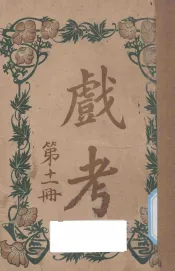 戲考
第十一冊